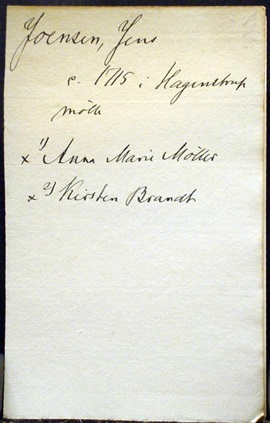 Joensen, Jens
c. 1715 i Hagenstrup
mölle
x 1) Anna Marie Möller
x 2) Kirsten Brandt